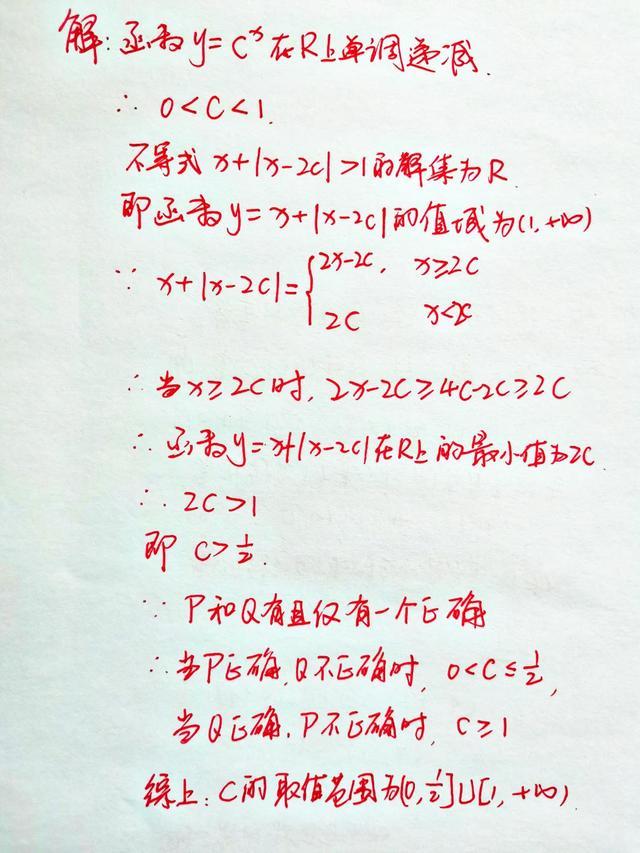 解:函数y=cˣ在R上单调递减.
∴ 0<C<1.
不等式 x+|x-2c|>1的解集为R
即函数y=x+|x-2c|的值域为(1,+∞)
∵ x+|x-2c|={2x-2c, x≥2c
2c x<2c
∴当x≥2c时, 2x-2c≥4c-2c≥2c
∴函数y=x+|x-2c|在R上的最小值为2c
∴ 2c>1
即 c>1/2.
∵ P和Q有且仅有一个正确
∴当P正确,Q不正确时, 0<c≤1/2,
当Q正确,P不正确时, c≥1
综上:C的取值范围为(0,1/2]∪[1,+∞)